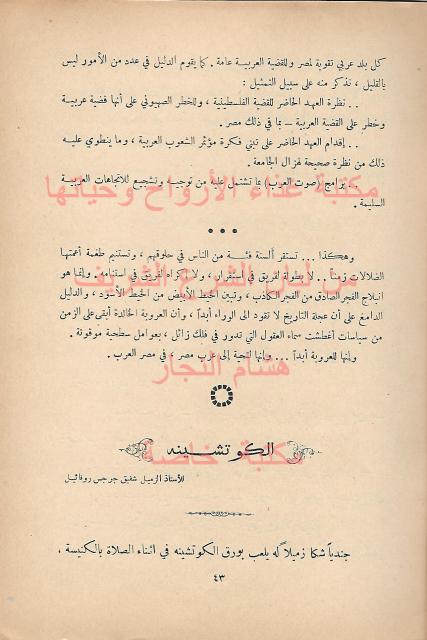 كل بلد عربي تقوية لمصر وللقضية العربية عامة . كما يقوم الدليل في عدد من الأمور ليس
بالقليل ، نذكر منه على سبيل التمثيل :
. . نظرة العهد الحاضر للقضية الفلسطينية ، وللخطر الصهيوني على أنها قضية عربية
وخطر على القضية العربية – بما في ذلك مصر .
. . إقدام العهد الحاضر على تبني فكرة مؤتمر الشعوب العربية ، وما ينطوي عليه
ذلك من نظرة صحيحة لهزال الجامعة .
. . برامج (صوت العرب) بما تشتمل عليه من توجيه وتشجيع للاتجاهات العربية
السليمة .
مكتبة غذاء الأرواح وحياتها
• • •
وهكذا ... تستقر ألسنة فئة من الناس في حلوقهم ، وتستنيم طغمة أعمتها
الضلالات زمناً .. لا بطولة لفريق في استقرار ، ولا إكراه لفريق في استنامة . وإنما هو
انبلاج الفجر الصادق من الفجر الكاذب ، وتبين الخيط الأبيض من الخيط الأسود ، والدليل
الدامغ على أن عجلة التاريخ لا تقود الى الوراء أبداً ، وأن العروبة الخالدة أبقى على الزمن
من سياسات أغطشت سماء العقول التي تدور في فلك زائل ، بعوامل سطحية موقوتة .
وإنها للعروبة أبداً ... وإنها لتحية إلى عرب مصر ، في مصر العرب .
هشام النجار
الكوتشينه
مكتبة خاصة
للأستاذ الزميل شفيق جرجس روفائيل
جندياً شكا زميلاً له يلعب بورق الكوتشينه في اثناء الصلاة بالكنيسة ،
٤٣